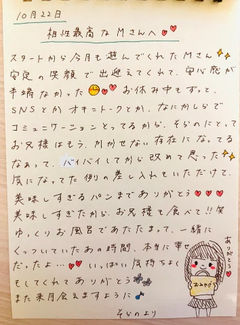 10月22日
相性最高なMさんへ
スタートから今月も選んでくれたMさん
安定の笑顔で出迎えてくれて、安心感が
半端なかった お休み中もずっと、
SNSとかオキニトークとか、なにかしらで
コミュニケーションとってるから、そらのにとって
お兄様はもう、欠かせない存在になってる
なぁって、バイバイしてから改めて思った
気になってた例の差し入れをいただけて、
美味しすぎるパンまでありがとう
美味しすぎたから、お兄様も食べて!!笑
ゆっくりお風呂であたたまって、一緒に
くっついていたあの時間、本当に幸せ
だったよ… いっぱい気持ちよく
もしてくれてありがとう
また来月会えますように♪
そらのより
ありがとう